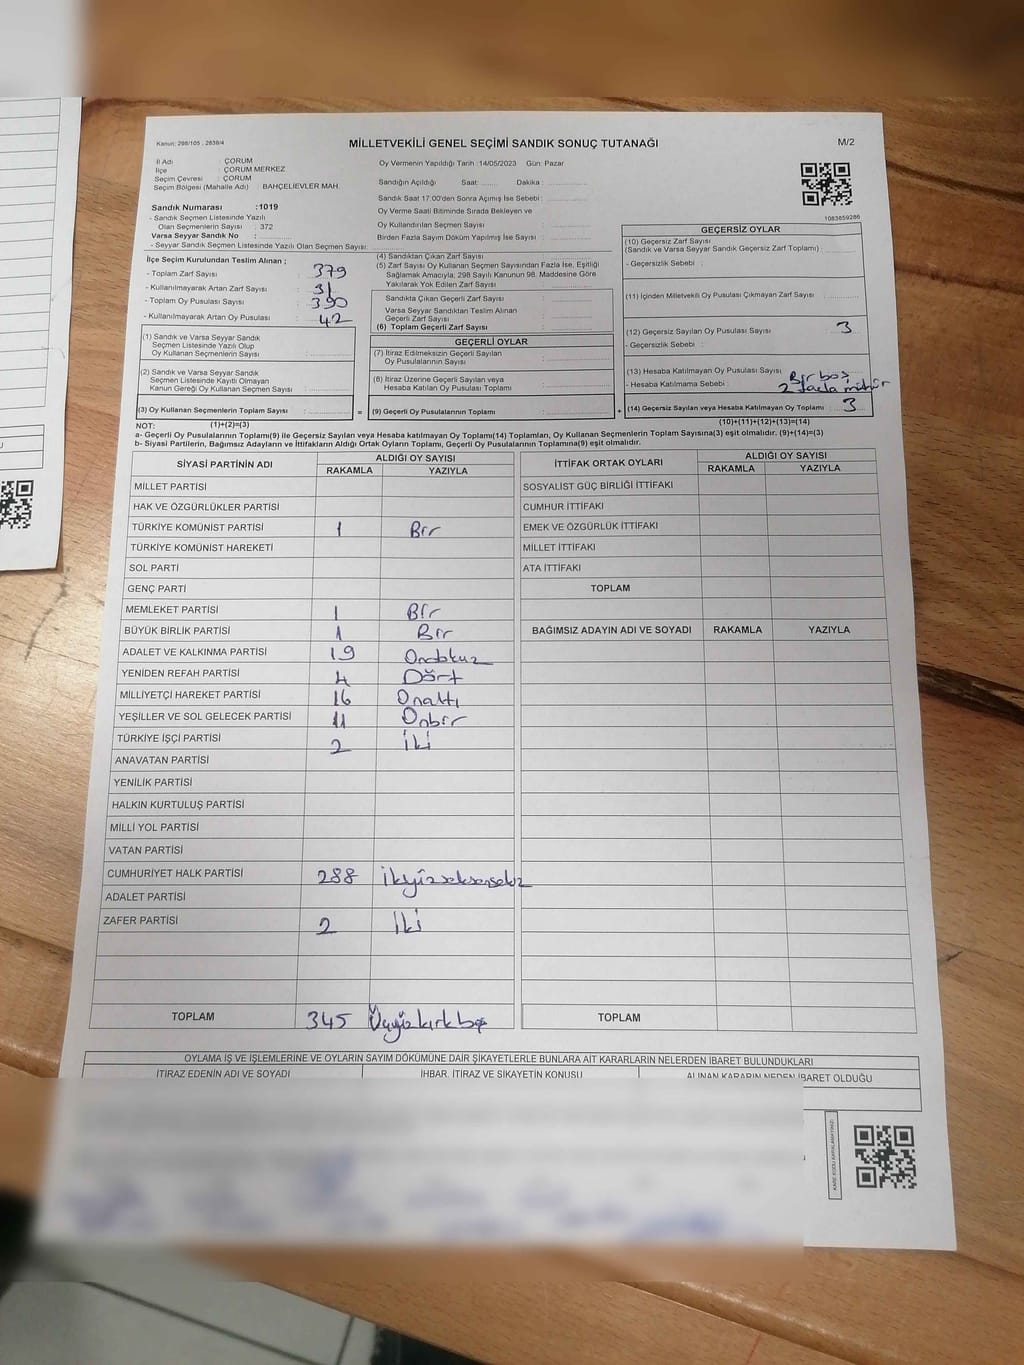 Kanun: 298/105 , 2839/4
MİLLETVEKİLİ GENEL SEÇİMİ SANDIK SONUÇ TUTANAĞI
M/2
İl Adı : ÇORUM
İlçe : ÇORUM MERKEZ
Seçim Çevresi : ÇORUM
Seçim Bölgesi (Mahalle Adı) : BAHÇELİEVLER MAH.
Sandık Numarası :1019
- Sandık Seçmen Listesinde Yazılı
Olan Seçmenlerin Sayısı : 372
Varsa Seyyar Sandık No :
- Seyyar Sandık Seçmen Listesinde Yazılı Olan Seçmen Sayısı:
Oy Vermenin Yapıldığı Tarih :14/05/2023 Gün: Pazar
Sandığın Açıldığı Saat: Dakika :
Sandık Saat 17:00'den Sonra Açımış İse Sebebi :
Oy Verme Saati Bitiminde Sırada Bekleyen ve
Oy Kullandırılan Seçmen Sayısı :
Birden Fazla Sayım Döküm Yapılmış İse Sayısı :
1083859286
İlçe Seçim Kurulundan Teslim Alınan ;
- Toplam Zarf Sayısı : 379
- Kullanılmayarak Artan Zarf Sayısı : 31
- Toplam Oy Pusulası Sayısı : 390
- Kullanılmayarak Artan Oy Pusulası : 42
(1) Sandık ve Varsa Seyyar Sandık
Seçmen Listesinde Yazılı Olup
Oy Kullanan Seçmenlerin Sayısı :
(2) Sandık ve Varsa Seyyar Sandık
Seçmen Listesinde Kayıtlı Olmayan
Kanun Gereği Oy Kullanan Seçmen Sayısı :
(3) Oy Kullanan Seçmenlerin Toplam Sayısı :
(4) Sandıktan Çıkan Zarf Sayısı :
(5) Zarf Sayısı Oy Kullanan Seçmen Sayısından Fazla İse, Eşitliği
Sağlamak Amacıyla, 298 Sayılı Kanunun 98. Maddesine Göre
Yakılarak Yok Edilen Zarf Sayısı :
Sandıkta Çıkan Geçerli Zarf Sayısı :
Varsa Seyyar Sandıktan Teslim Alınan
Geçerli Zarf Sayısı :
(6) Toplam Geçerli Zarf Sayısı :
GEÇERLİ OYLAR
(7) İtiraz Edilmeksizin Geçerli Sayılan
Oy Pusulalarının Sayısı :
(8) İtiraz Üzerine Geçerli Sayılan veya
Hesaba Katılan Oy Pusulası Toplamı :
= (9) Geçerli Oy Pusulalarının Toplamı :
GEÇERSİZ OYLAR
(10) Geçersiz Zarf Sayısı
(Sandık ve Varsa Seyyar Sandık Geçersiz Zarf Toplamı) :
- Geçersizlik Sebebi :
(11) İçinden Milletvekili Oy Pusulası Çıkmayan Zarf Sayısı :
(12) Geçersiz Sayılan Oy Pusulası Sayısı : 3
- Geçersizlik Sebebi :
(13) Hesaba Katılmayan Oy Pusulası Sayısı : Bir boş
- Hesaba Katılmama Sebebi : 2 fazla mühür
+ (14) Geçersiz Sayılan veya Hesaba Katılmayan Oy Toplamı : 3
NOT: (1)+(2)=(3)
(10)+(11)+(12)+(13)=(14)
a- Geçerli Oy Pusulalarının Toplamı(9) ile Geçersiz Sayılan veya Hesaba katılmayan Oy Toplamı(14) Toplamları, Oy Kullanan Seçmenlerin Toplam Sayısına(3) eşit olmalıdır. (9)+(14)=(3)
b- Siyasi Partilerin, Bağımsız Adayların ve İttifakların Aldığı Ortak Oyların Toplamı, Geçerli Oy Pusulalarının Toplamına(9) eşit olmalıdır.
SİYASİ PARTİNİN ADI ALDIĞI OY SAYISI
RAKAMLA YAZIYLA
MİLLET PARTİSİ
HAK VE ÖZGÜRLÜKLER PARTİSİ
TÜRKİYE KOMÜNİST PARTİSİ 1 Bir
TÜRKİYE KOMÜNİST HAREKETİ
SOL PARTİ
GENÇ PARTİ
MEMLEKET PARTİSİ 1 Bir
BÜYÜK BİRLİK PARTİSİ 1 Bir
ADALET VE KALKINMA PARTİSİ 19 Ondokuz
YENİDEN REFAH PARTİSİ 4 Dört
MİLLİYETÇİ HAREKET PARTİSİ 16 Onaltı
YEŞİLLER VE SOL GELECEK PARTİSİ 11 Onbir
TÜRKİYE İŞÇİ PARTİSİ 2 İki
ANAVATAN PARTİSİ
YENİLİK PARTİSİ
HALKIN KURTULUŞ PARTİSİ
MİLLİ YOL PARTİSİ
VATAN PARTİSİ
CUMHURİYET HALK PARTİSİ 288 İkiyüzseksensekiz
ADALET PARTİSİ
ZAFER PARTİSİ 2 İki
TOPLAM 345 Üçyüzkırkbeş
İTTİFAK ORTAK OYLARI ALDIĞI OY SAYISI
RAKAMLA YAZIYLA
SOSYALİST GÜÇ BİRLİĞİ İTTİFAKI
CUMHUR İTTİFAKI
EMEK VE ÖZGÜRLÜK İTTİFAKI
MİLLET İTTİFAKI
ATA İTTİFAKI
TOPLAM
BAĞIMSIZ ADAYIN ADI VE SOYADI RAKAMLA YAZIYLA
TOPLAM
OYLAMA İŞ VE İŞLEMLERİNE VE OYLARIN SAYIM DÖKÜMÜNE DAİR ŞİKAYETLERLE BUNLARA AİT KARARLARIN NELERDEN İBARET BULUNDUKLARI
İTİRAZ EDENİN ADI VE SOYADI İHBAR, İTİRAZ VE ŞİKAYETİN KONUSU ALINAN KARARIN NEDEN İBARET OLDUĞU